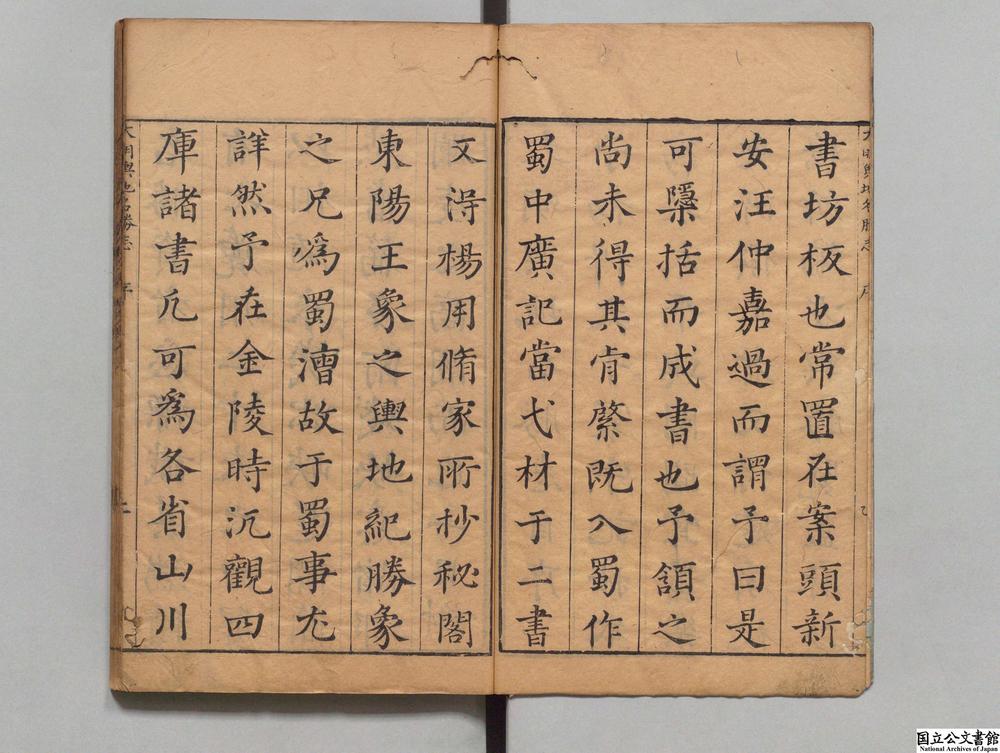 書坊板也常置在案頭新
安汪仲嘉過而謂予曰是
可櫽括而成書也予頷之
尚未得其肯綮既入蜀作
蜀中廣記當弋材于二書
又淂楊用脩家所抄秘閣
東陽王象之輿地紀勝象
之兄為蜀漕故于蜀事尤
詳然予在金陵時沉觀四
庫諸書凡可為各省山川
大明輿地名勝志
序
二
国立公文書館
National Archives of Japan